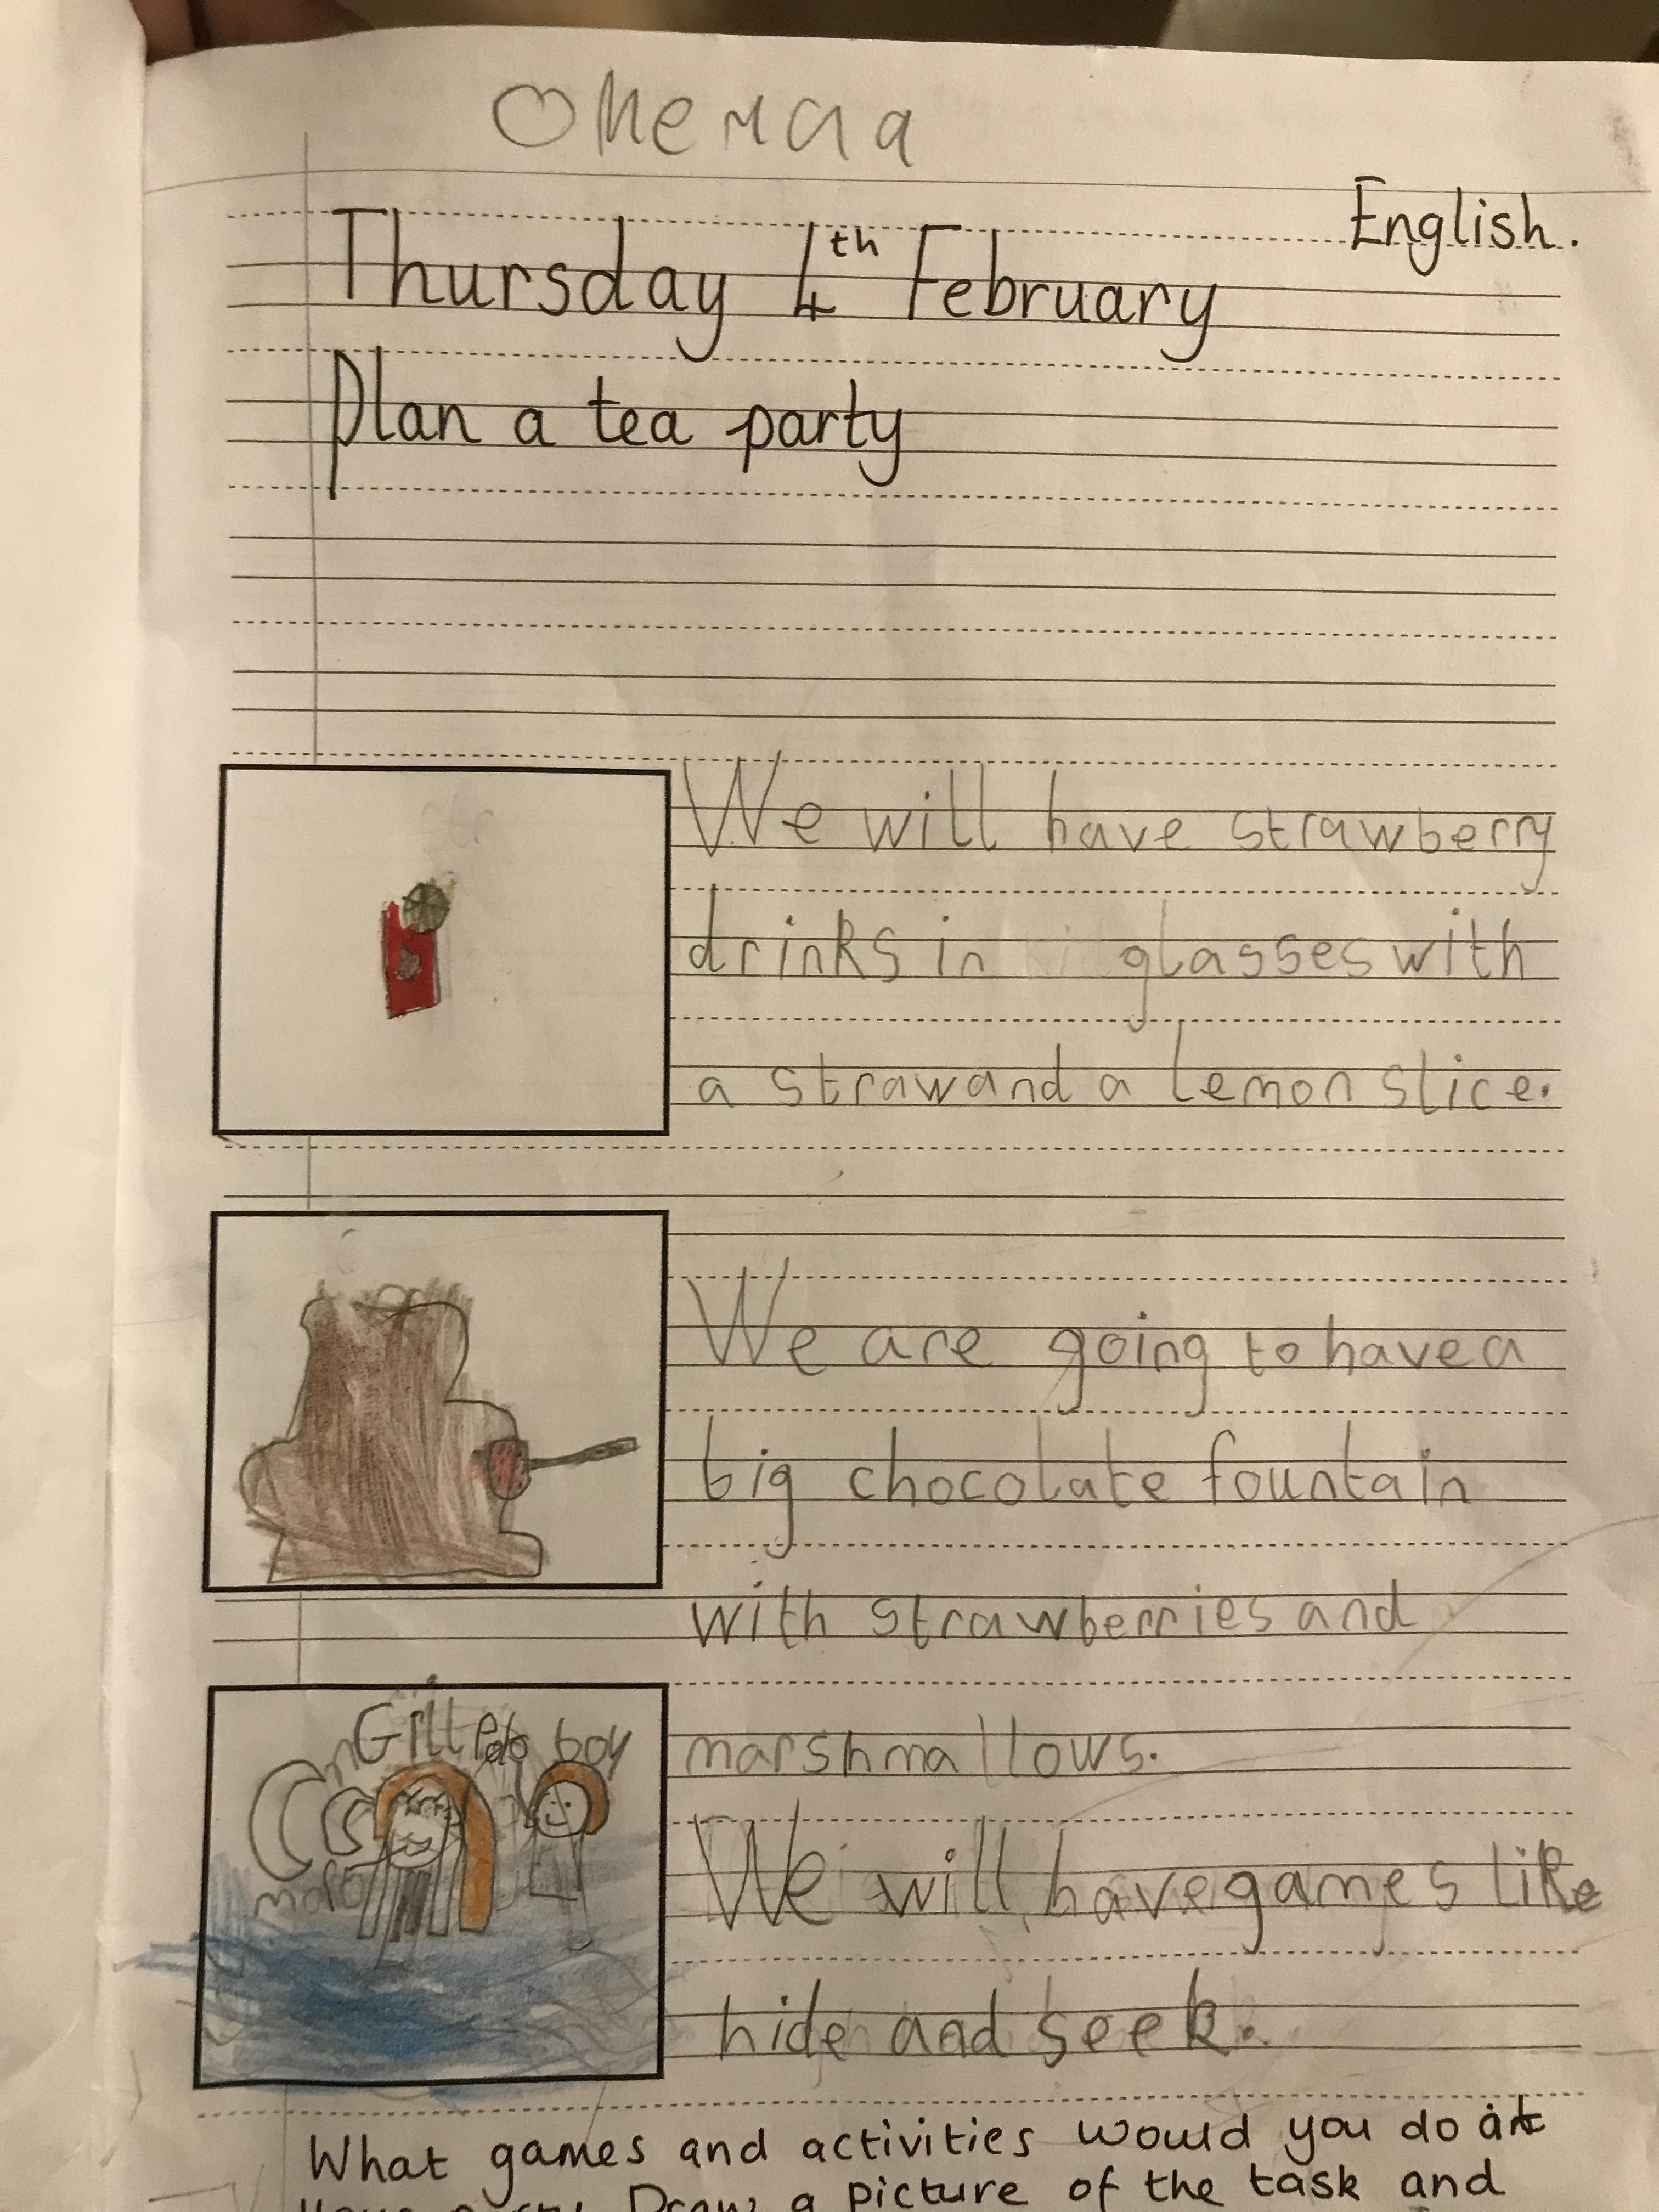 English.
Thursday 4th February
Plan a tea party
We will have strawberry
drinks in glasses with
a straw and a lemon slice.
We are going to have a
big chocolate fountain
with strawberries and
marshmallows.
boy
We will have games like
hide and seek.
What games and activities would you do at
Draw a picture of the task and